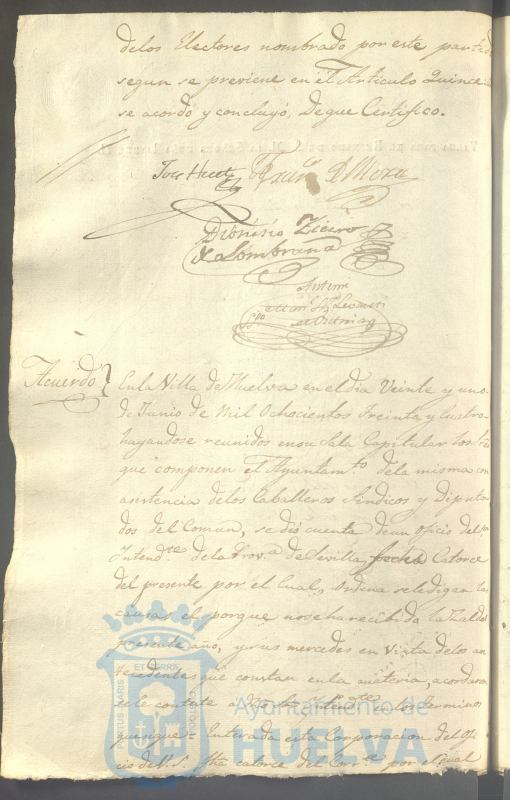 delos Electores nombrado por este partido
segun se previene en el Articulo Quince
se acordó y concluyó, De que Certifico.
Dionisio
Acuerdo
En la Villa de Huelva en el dia Veinte y uno
de Junio de Mil Ochocientos Treinta y Cuatro
hayandose reunidos en su Sala Capitular los Sres
que componen el Ayuntamto dela misma con
asistencia delos Caballeros Sindicos y Diputa
dos del Comun, se dió cuenta de un Oficio del Sor
Intendte dela Prova de Sevilla fecha Catorce
del presente por el Cual, Ordena se le digan las
causas el porque no se ha recibido la
presente año, y sus mercedes en Vista delos an
tecedentes que constan en la materia, acordaron
se le conteste a dicho Sr Intendte en los terminos
que sigue = Enterada esta Corporacion del Ofi
cio de V.S. fha catorce del Corrte por el cual
PORTUS MARIS
ET TERRÆ
CUSTODIA
Ayuntamiento de
HUELVA